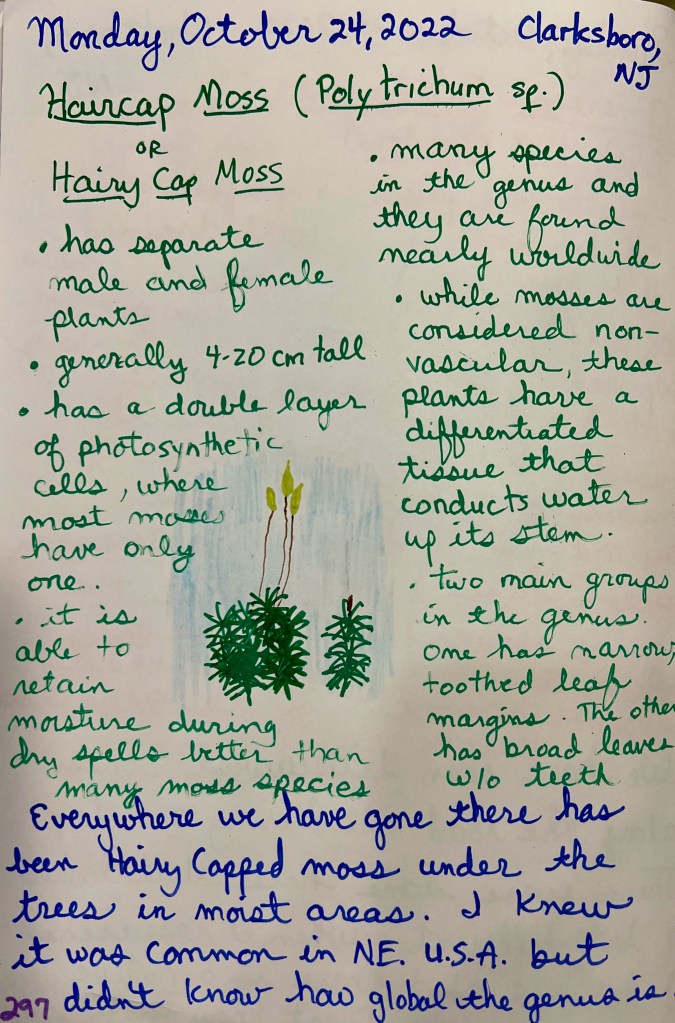 Monday, October 24, 2022 Clarksboro,
NJ
Haircap Moss (Polytrichum sp.)
OR
Hairy Cap Moss
• has separate
male and female
plants
• generally 4-20 cm tall
• has a double layer
of photosynthetic
cells, where
most mosses
have only
one.
• it is
able to
retain
moisture during
dry spells better than
many moss species
• many species
in the genus and
they are found
nearly worldwide
• while mosses are
considered non-
vascular, these
plants have a
differentiated
tissue that
conducts water
up its stem.
• two main groups
in the genus.
one has narrow,
toothed leaf
margins. The other
has broad leaves
w/o teeth
Everywhere we have gone there has
been Hairy Capped moss under the
trees in moist areas. I knew
it was common in NE. U.S.A. but
didn't know how global the genus is.
297